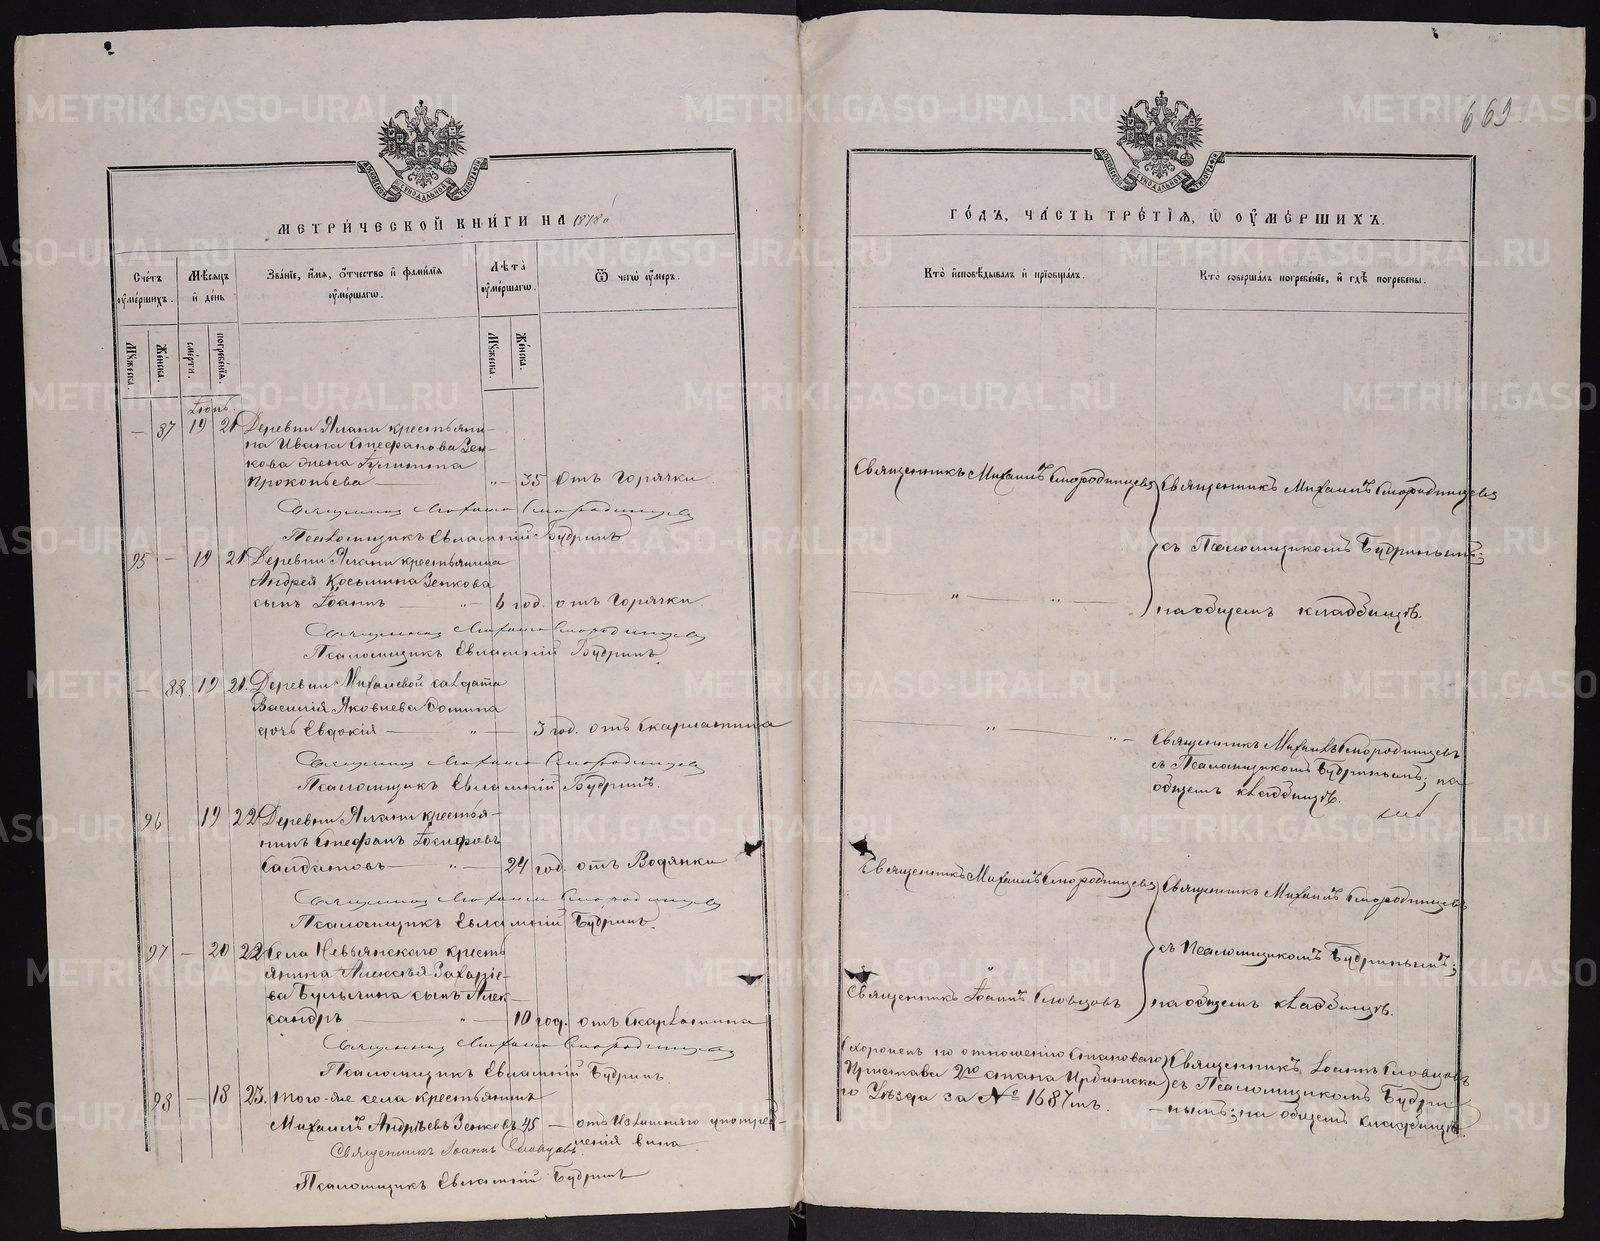 669
МЕТРИ́ЧЕСКОЙ КНИ́ГИ НА 1878й
Сче́тъ оу҆ме́ршихъ.
Мѣ́сяцъ и҆ де́нь
Зва́нїе, и҆́мя, ѻ҆́тчество и҆ фами́лїя оу҆ме́ршагѡ.
Лѣ́та оу҆ме́ршагѡ.
Ѿ чегѡ̀ оу҆́меръ.
Мꙋ́жеска.
Же́нска.
сме́рти.
погребе́нїя.
Мꙋ́жеска.
Же́нска.
Іюнь.
— 87 19 21 Деревни Ялани крестьяни-
на Ивана Стефанова Зен-
кова жена Іулитта
Прокопьева — „ — 35 отъ Горячки
Священникъ Михаилъ Смородинцевъ
Псаломщикъ Евлампій Будринъ
95 — 19 21 Деревни Ялани крестьянина
Андрея Косьмина Зенкова
сынъ Іоаннъ — „ — 6 год. отъ Горячки.
Священникъ Михаилъ Смородинцевъ
Псаломщикъ Евлампій Будринъ.
— 88 19 21. Деревни Михалевой салдата
Василія Яковлева Фомина
дочь Евдокія — „ — 3 год. отъ Скарлатина
Священникъ Михаилъ Смородинцевъ
Псаломщикъ Евлампій Будринъ.
96 19 22 Деревни Ялани крестья-
нинъ Стефанъ Іосифовъ
Салдатовъ — „ — 24 год. отъ Водянки
Священникъ Михаилъ Смородинцевъ
Псаломщикъ Евлампій Будринъ.
97 — 20 22 Села Невьянскаго кресть
янина Алексѣя Захаріе-
ва Булыгина сынъ Алек-
сандръ „ — 10 год. отъ Скарлатина
Священникъ Михаилъ Смородинцевъ
Псаломщикъ Евлампій Будринъ
98 — 18 23. Того-же села крестьянинъ
Михаилъ Андреевъ Зенковъ 45 — отъ излишняго употреб-
ленія вина
Священникъ Іоаннъ Словцовъ.
Псаломщикъ Евлампій Будринъ
ГО́ДЪ, ЧА́СТЬ ТРЕ́ТЇЯ, Ѽ ОУ҆МЕ́РШИХЪ.
Кто̀ и҆сповѣ́дывалъ и҆ прїѻбща́лъ.
Кто̀ соверша́лъ погребе́нїе, и҆ гдѣ̀ погребены.
Священникъ Михаилъ Смородинцевъ
Священникъ Михаилъ Смородинцевъ
съ Псаломщикомъ Будринымъ;
— „ — „ —
на общемъ кладбищѣ.
— „ — „ —
Священникъ Михаилъ Смородинцевъ
съ Псаломщикомъ Будринымъ; на
общемъ кладбищѣ.
Священникъ Михаилъ Смородинцевъ
Священникъ Михаилъ Смородинцевъ
съ Псаломщикомъ Будринымъ;
Священникъ Іоаннъ Словцовъ
на общемъ кладбищѣ.
Схороненъ по отношенію Становаго
Пристава 2го стана Ирбитска
го Уѣзда за № 1687мъ.
Священникъ Іоаннъ Словцовъ
съ Псаломщикомъ Будри
нымъ; на общемъ кладбищѣ.
METRIKI.GASO-URAL.RU